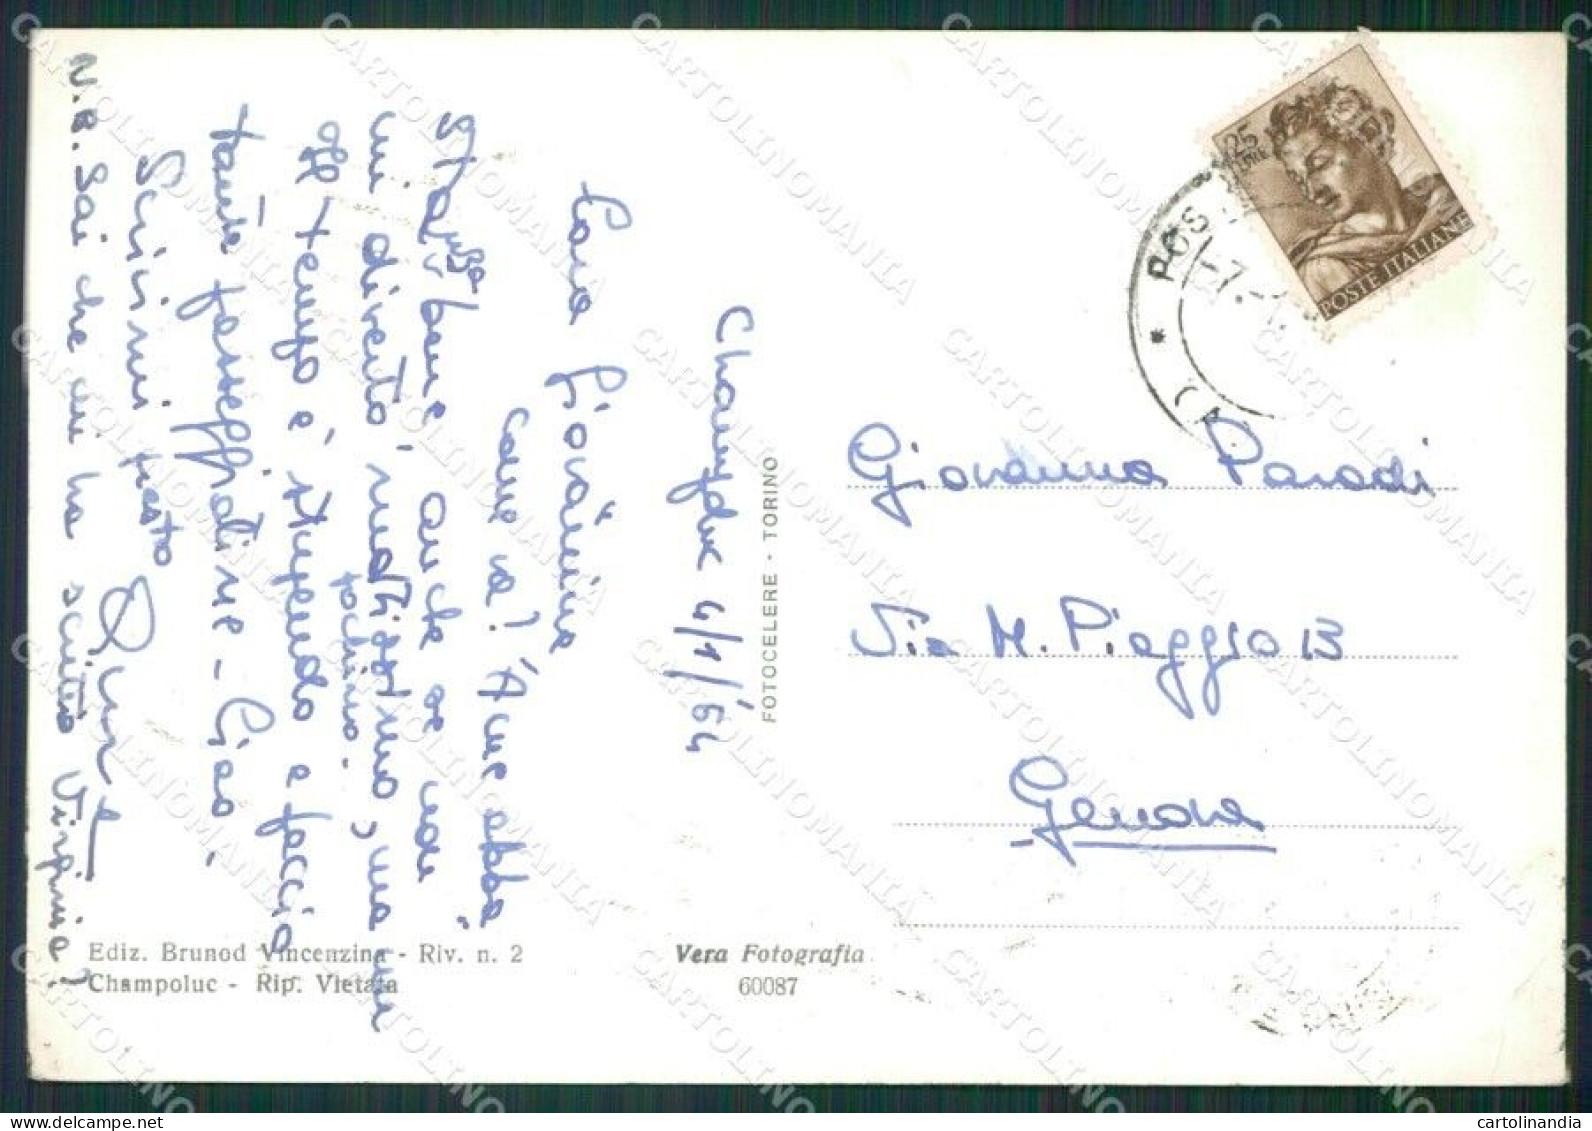 Champoluc 4/1/64
Cara Giovanna
come va? Anche se
sto bene, anche se non
mi diverto moltissimo, ma un
pochino.
Il tempo è stupendo e faccio
tante passeggiatine - Ciao,
Scrivimi presto
N.B. Sai che mi ha scritto Virginia?
FOTOCELERE - TORINO
Ediz. Brunod Vincenzina - Riv. n. 2
Champoluc - Rip. Vietata
Vera Fotografia
60087
25
LIRE
POSTE ITALIANE
POS
-7.
Giovanna Parodi
Via M. Piaggio 13
Genova
CARTOLINOMANIA
cartolinandia